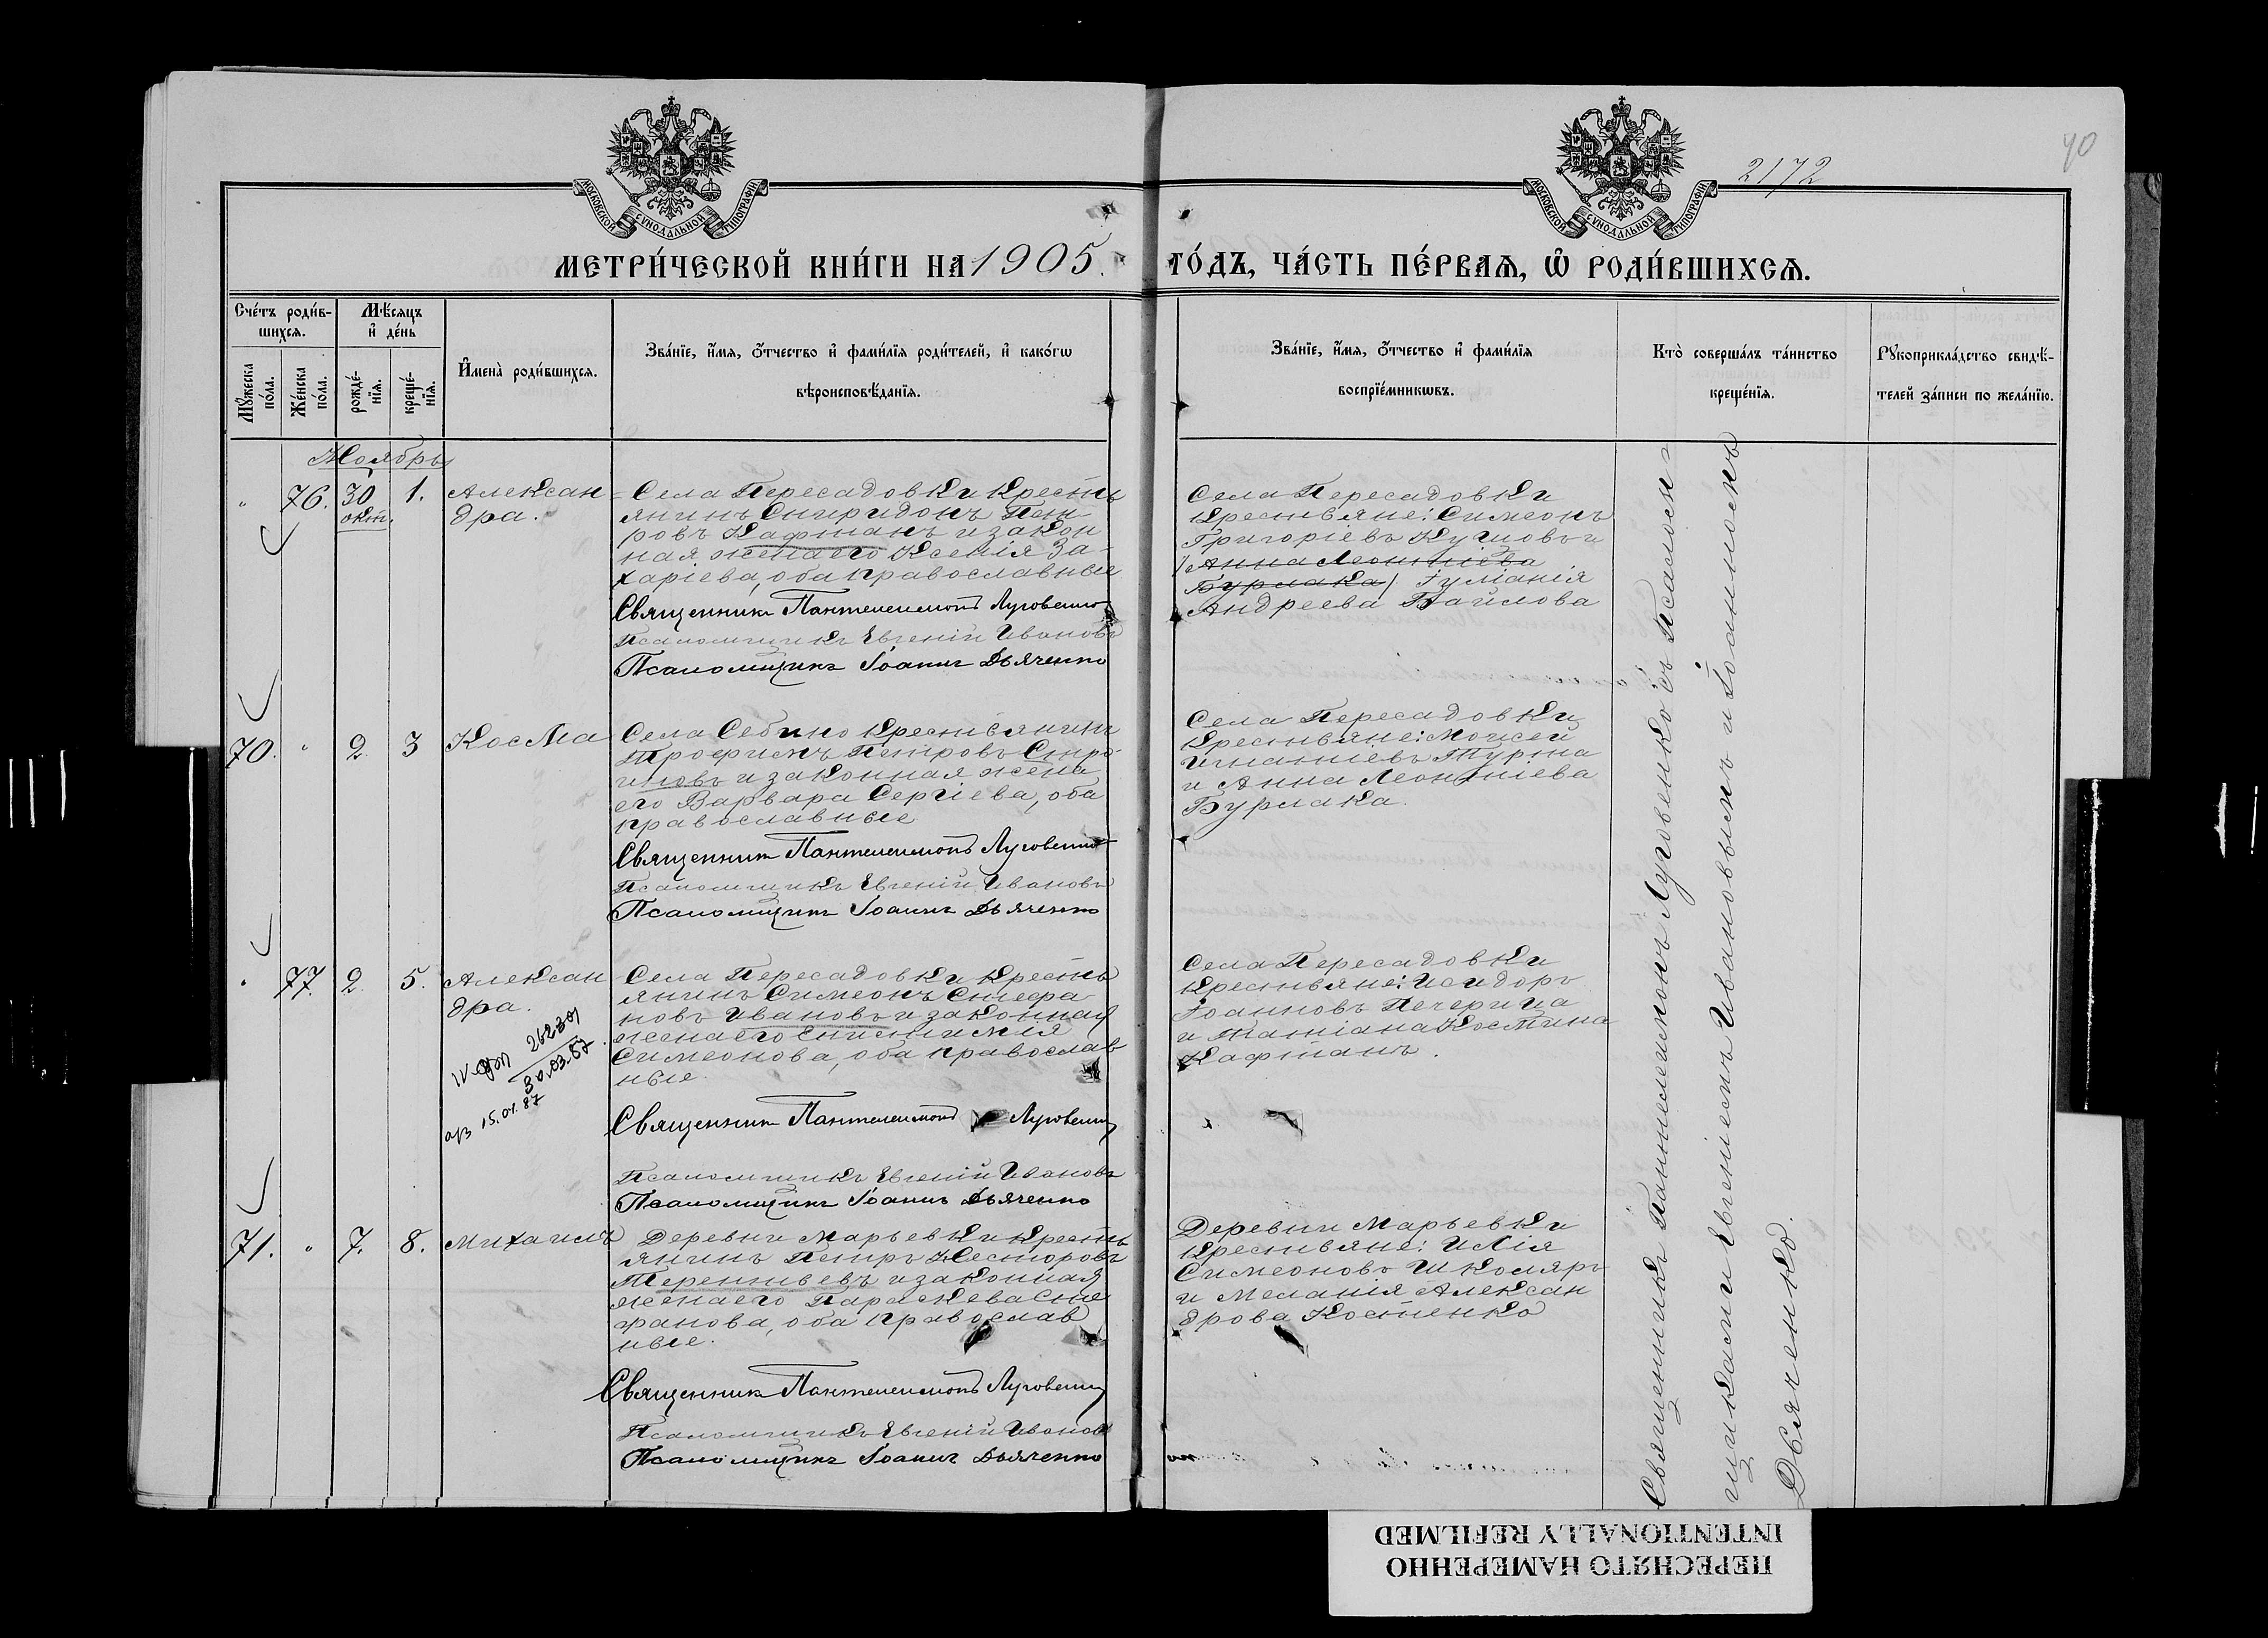 МОСКОВСКОЙ СУНОДАЛЬНОЙ ТИПОГРАФІИ
МОСКОВСКОЙ СУНОДАЛЬНОЙ ТИПОГРАФІИ
2172
40
МЕТРИ́ЧЕСКОЙ КНИ́ГИ НА 1905.
ГО́ДЪ, ЧА́СТЬ ПЕ́РВАЯ, Ѽ РОДИ́ВШИХСЯ.
Сче́тъ роди́в-
шихся.
Мꙋ́жеска
по́ла.
Же́нска
по́ла.
Мѣ́сяцъ
и҆ де́нь
рожде́-
нїя.
креще́-
нїя.
И҆мена̀ роди́вшихся.
Зва́нїе, и҆́мя, ѻ҆́тчество и҆ фами́лїя роди́телей, и҆ како́гѡ
вѣроисповѣ́данїя.
Зва́нїе, и҆́мя, ѻ҆́тчество и҆ фами́лїя
воспрїе́мникѡвъ.
Кто̀ соверша́лъ та́инство
креще́нїя.
Рꙋкоприкла́дство свидѣ́-
телей за́писи по жела́нїю.
Ноябрь
" 76. 30 окт. 1. Алексан-
дра.
Села Пересадовки Кресть
янинъ Спиридонъ Пет
ровъ Кафтанъ и закон
ная жена его Ксенія За-
харіева, оба православные
Священникъ Пантелеимонъ Луговенко
Псаломщикъ Евгеній Ивановъ
Псаломщикъ Іоаннъ Дьяченко
Села Пересадовки
Крестьяне: Симеонъ
Григоріевъ Куцовъ и
/Анна Леонтіева
Бурлака/ Іуліанія
Андреева Байлова
70. " 2. 3 Косма
Села Себино Крестьянинъ
Трофимъ Петровъ Стро
иновъ и законная жена
его Варвара Сергіева, оба
православные
Священникъ Пантелеимонъ Луговенко
Псаломщикъ Евгеній Ивановъ
Псаломщикъ Іоаннъ Дьяченко
Села Пересадовки
Крестьяне: Моисей
Игнатіевъ Турта
и Анна Леонтіева
Бурлака.
" 77. 2. 5. Алексан
дра.
30.03.87
15.01.87
Села Пересадовки Кресть
янинъ Симеонъ Стефа
новъ Ивановъ и законная
жена его Епистимія
Симеонова, оба православ
ные.
Священникъ Пантелеимонъ Луговенко
Псаломщикъ Евгеній Ивановъ
Псаломщикъ Іоаннъ Дьяченко
Села Пересадовки
Крестьяне: Исидоръ
Іоанновъ Печерица
и Татіана Космина
Кафтанъ.
71. " 7. 8. Михаилъ
Деревни Марьевки Кресть
янинъ Петръ Несторовъ
Терентьевъ и законная
жена его Параскева Сте
фанова, оба православ
ные.
Священникъ Пантелеимонъ Луговенко
Псаломщикъ Евгеній Ивановъ
Псаломщикъ Іоаннъ Дьяченко
Деревни Марьевки
Крестьяне: Илія
Симеоновъ Школяръ
и Меланія Алексан
дрова Костенко
Священникъ Пантелеимонъ Луговенко съ псалом-
щиками Евгеніемъ Ивановымъ и Іоанномъ
Дьяченко.
ПЕРЕСНЯТО НАМЕРЕННО
INTENTIONALLY REFILMED